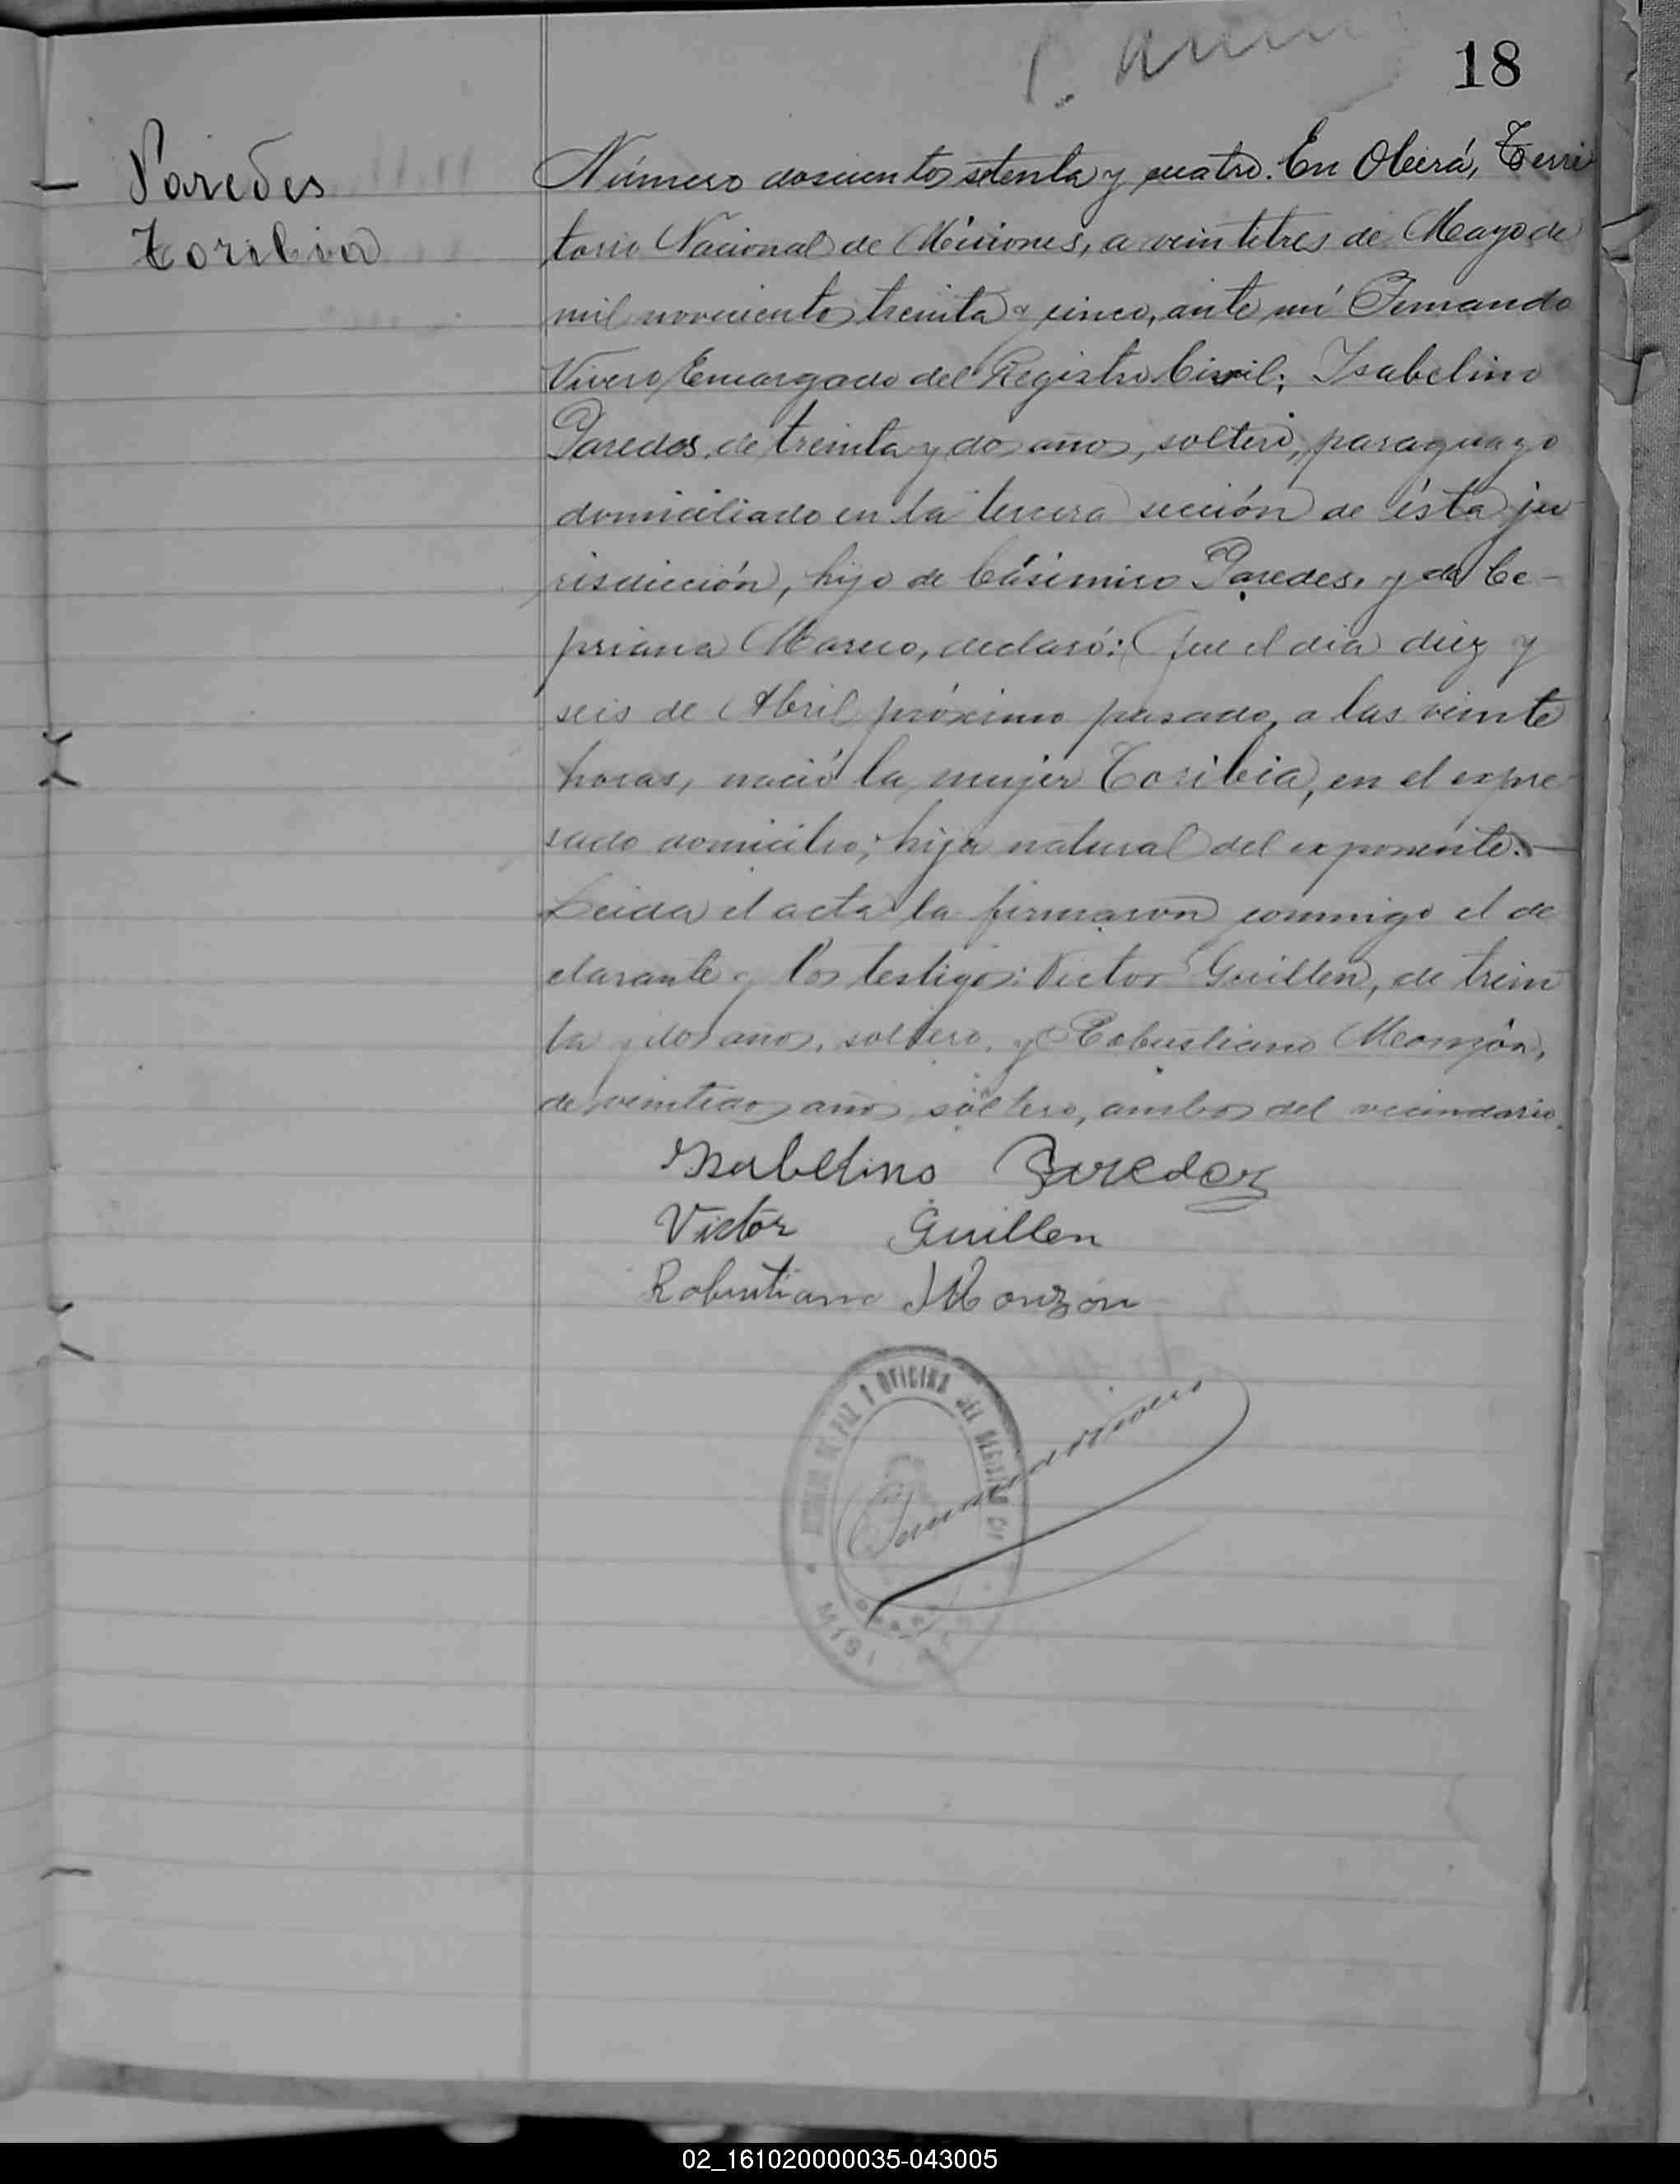 18
Paredes
Toribia
Número doscientos setenta y cuatro. En Oberá, Terri
torio Nacional de Misiones, a veintitres de Mayo de
mil novecientos treinta y cinco, ante mí Fernando
Vivero, Encargado del Registro Civil; Isabelino
Paredes, de treinta y dos años, soltero, paraguayo
domiciliado en la tercera sección de ésta ju
risdicción, hijo de Cásimiro Paredes, y de Ce-
priana Mareco, declaró: Que el día diez y
seis de Abril próximo pasado, a las veinte
horas, nació la mujer Toribia, en el expre
sado domicilio; hija natural del exponente.-
Leida el acta la firmaron conmigo el de
clarante y los testigos: Victor Guillen, de trein
ta y dos años, soltero, y Robustiano Monzón,
de veintidos años soltero, ambos del vecindario.
Isabelino Paredes
Victor Guillen
Robustiano Monzón
DE PAZ Y OFICINA DEL REGISTRO
MISI
02_161020000035-043005